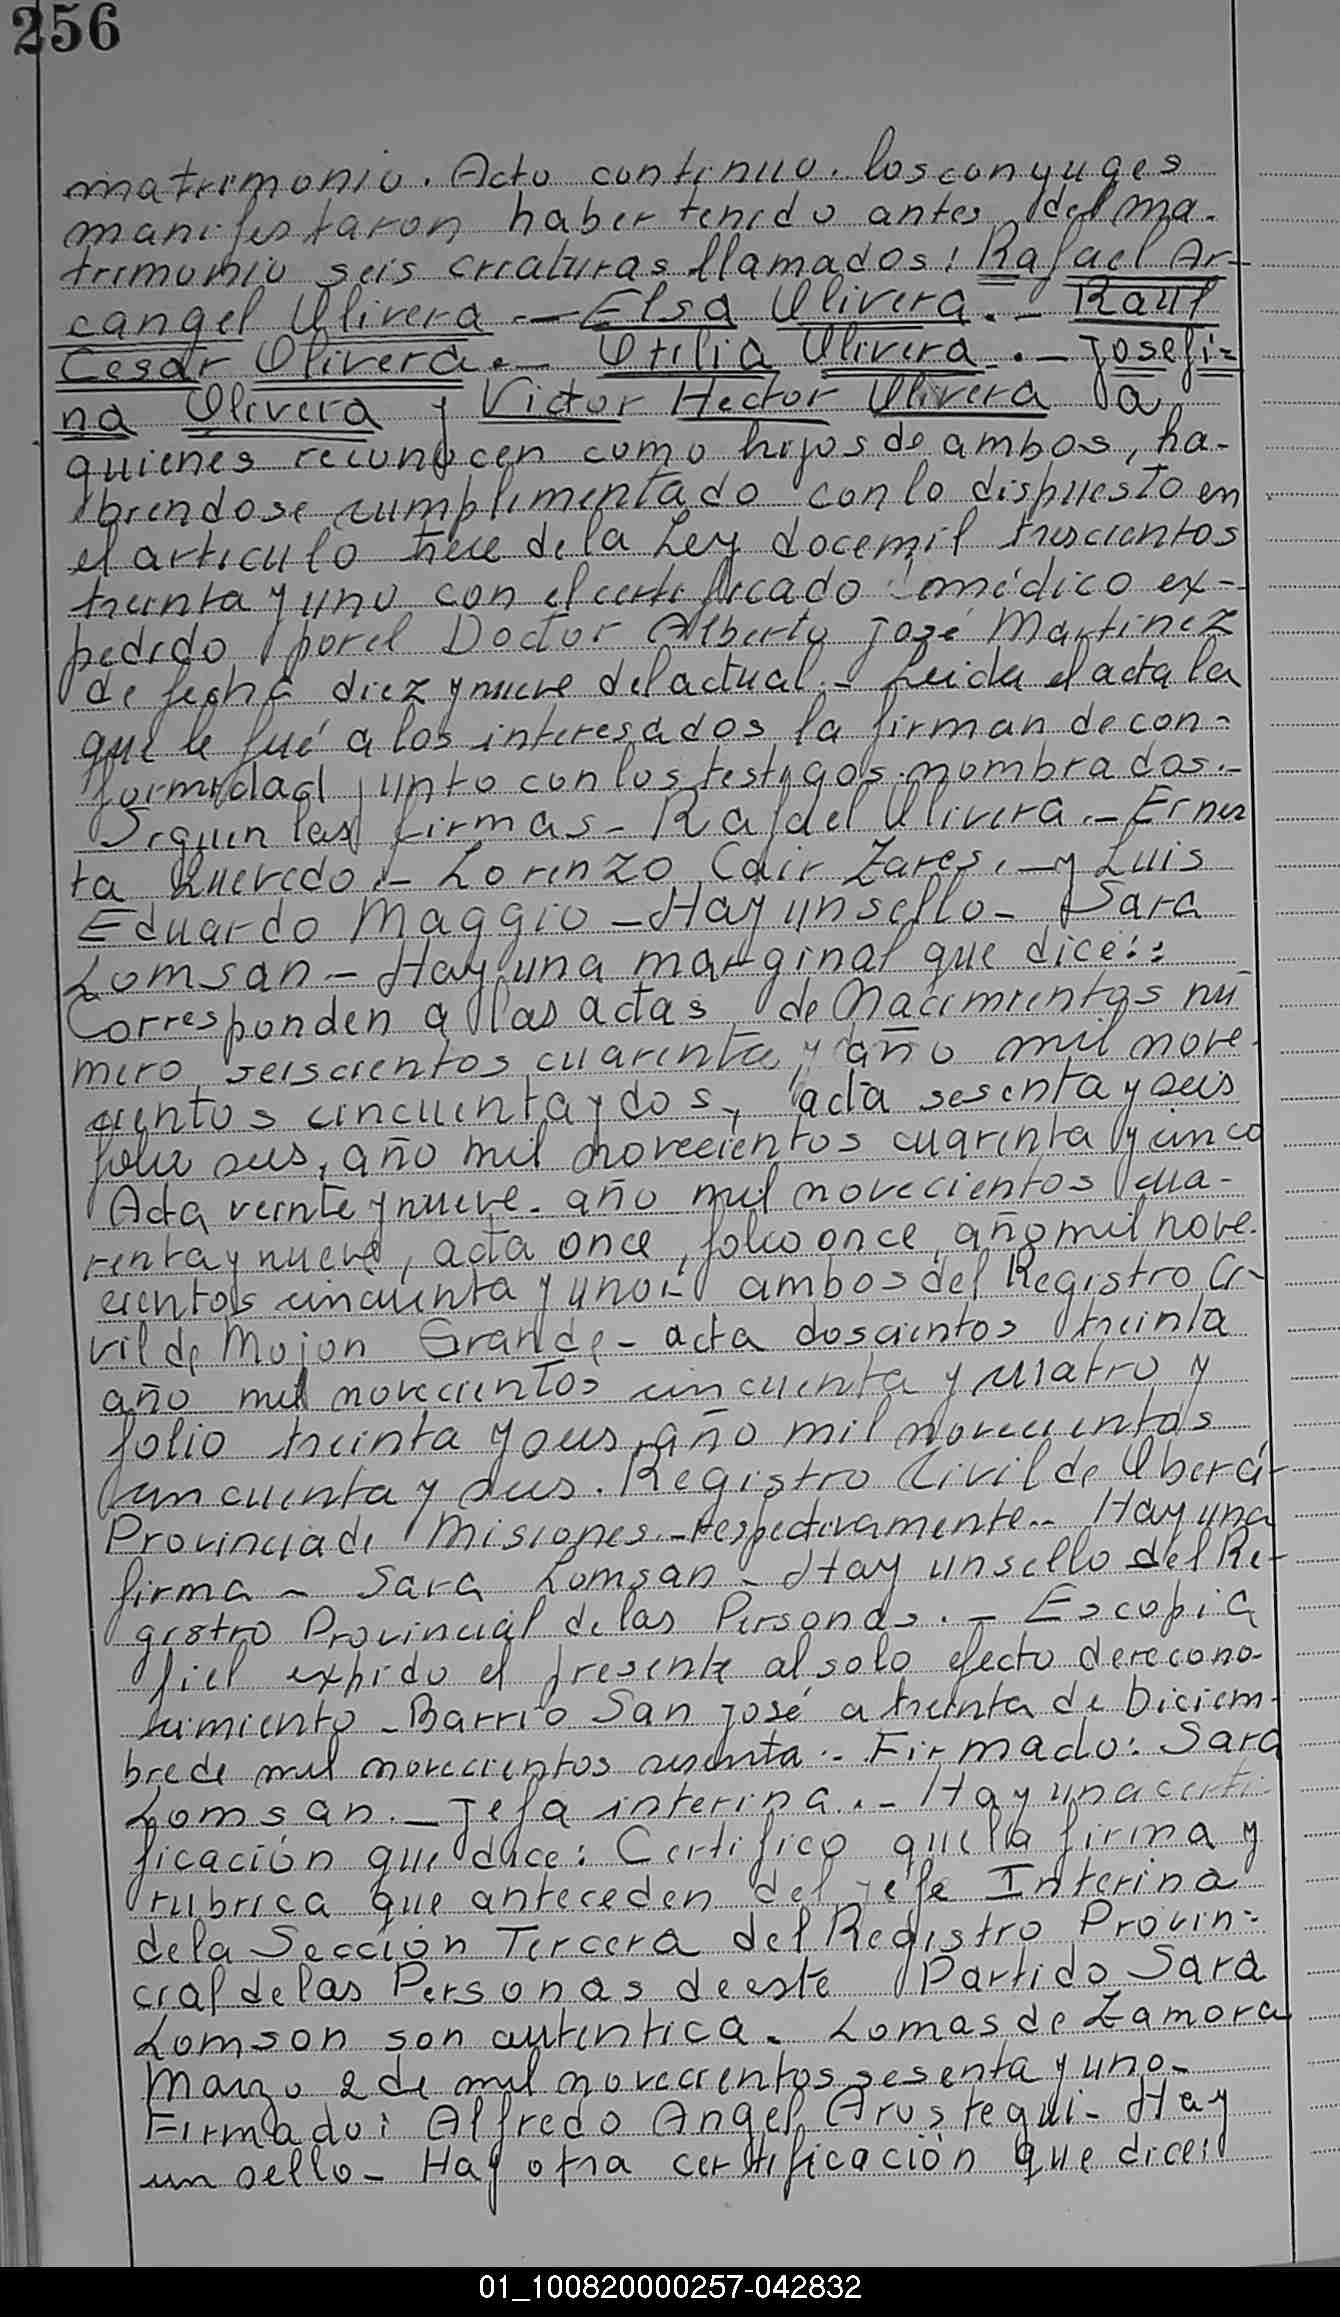 256
matrimonio. Acto continuo. los conyuges
manifestaron haber tenido antes del ma-
trimonio seis criaturas llamados: Rafael Ar-
cangel Olivera.— Elsa Olivera.— Raul
Cesar Olivera.— Otilia Olivera.— Josefi=
na Olivera y Victor Hector Olivera a
quienes reconocen como hijos de ambos, ha-
biendose cumplimentado con lo dispuesto en
el articulo trece de la Ley doce mil trescientos
treinta y uno con el certificado médico ex-
pedido por el Doctor Alberto José Martinez
de fecha diez y nueve del actual.- Leida el acta la
que le fué a los interesados la firman de con=
formidad junto con los testigos nombrados.-
Siguen las firmas- Rafael Olivera.- Ernes
ta Quevedo.- Lorenzo Cair Zares.— y Luis
Eduardo Maggio - Hay un sello- Sara
Lomsan - Hay una marginal que dice::
Corresponden a las actas de Nacimientos nu
mero seiscientos cuarenta y año mil nove-
cientos cincuenta y dos, acta sesenta y seis
folio seis, año mil novecientos cuarenta y cinco
Acta veinte y nueve. año mil novecientos cua-
renta y nueve, acta once, folio once, año mil nove-
cientos cincuenta y uno.- ambos del Registro Ci-
vil de Mojon Grande - acta doscientos treinta
año mil novecientos cincuenta y cuatro y
folio treinta y seis, año mil novecientos
cincuenta y seis. Registro Civil de Oberá-
Provincia de Misiones.- respectivamente.- Hay una
firma - Sara Lomsan - Hay un sello del Re-
gistro Provincial de las Personas.- Es copia
fiel expido el presente al solo efecto de recono-
cimiento - Barrio San José a treinta de Diciem-
bre de mil novecientos sesenta.- Firmado: Sara
Lomsan.- Jefa interina.- Hay una certi-
ficación que dice: Certifico que la firma y
rubrica que anteceden del Jefe Interina
de la Sección Tercera del Registro Provin=
cial de las Personas de este Partido Sara
Lomson son autentica. Lomas de Zamora
Marzo 2 de mil novecientos sesenta y uno-
Firmado: Alfredo Angel Arostegui- Hay
un sello- Hay otra certificación que dice:
01_100820000257-042832